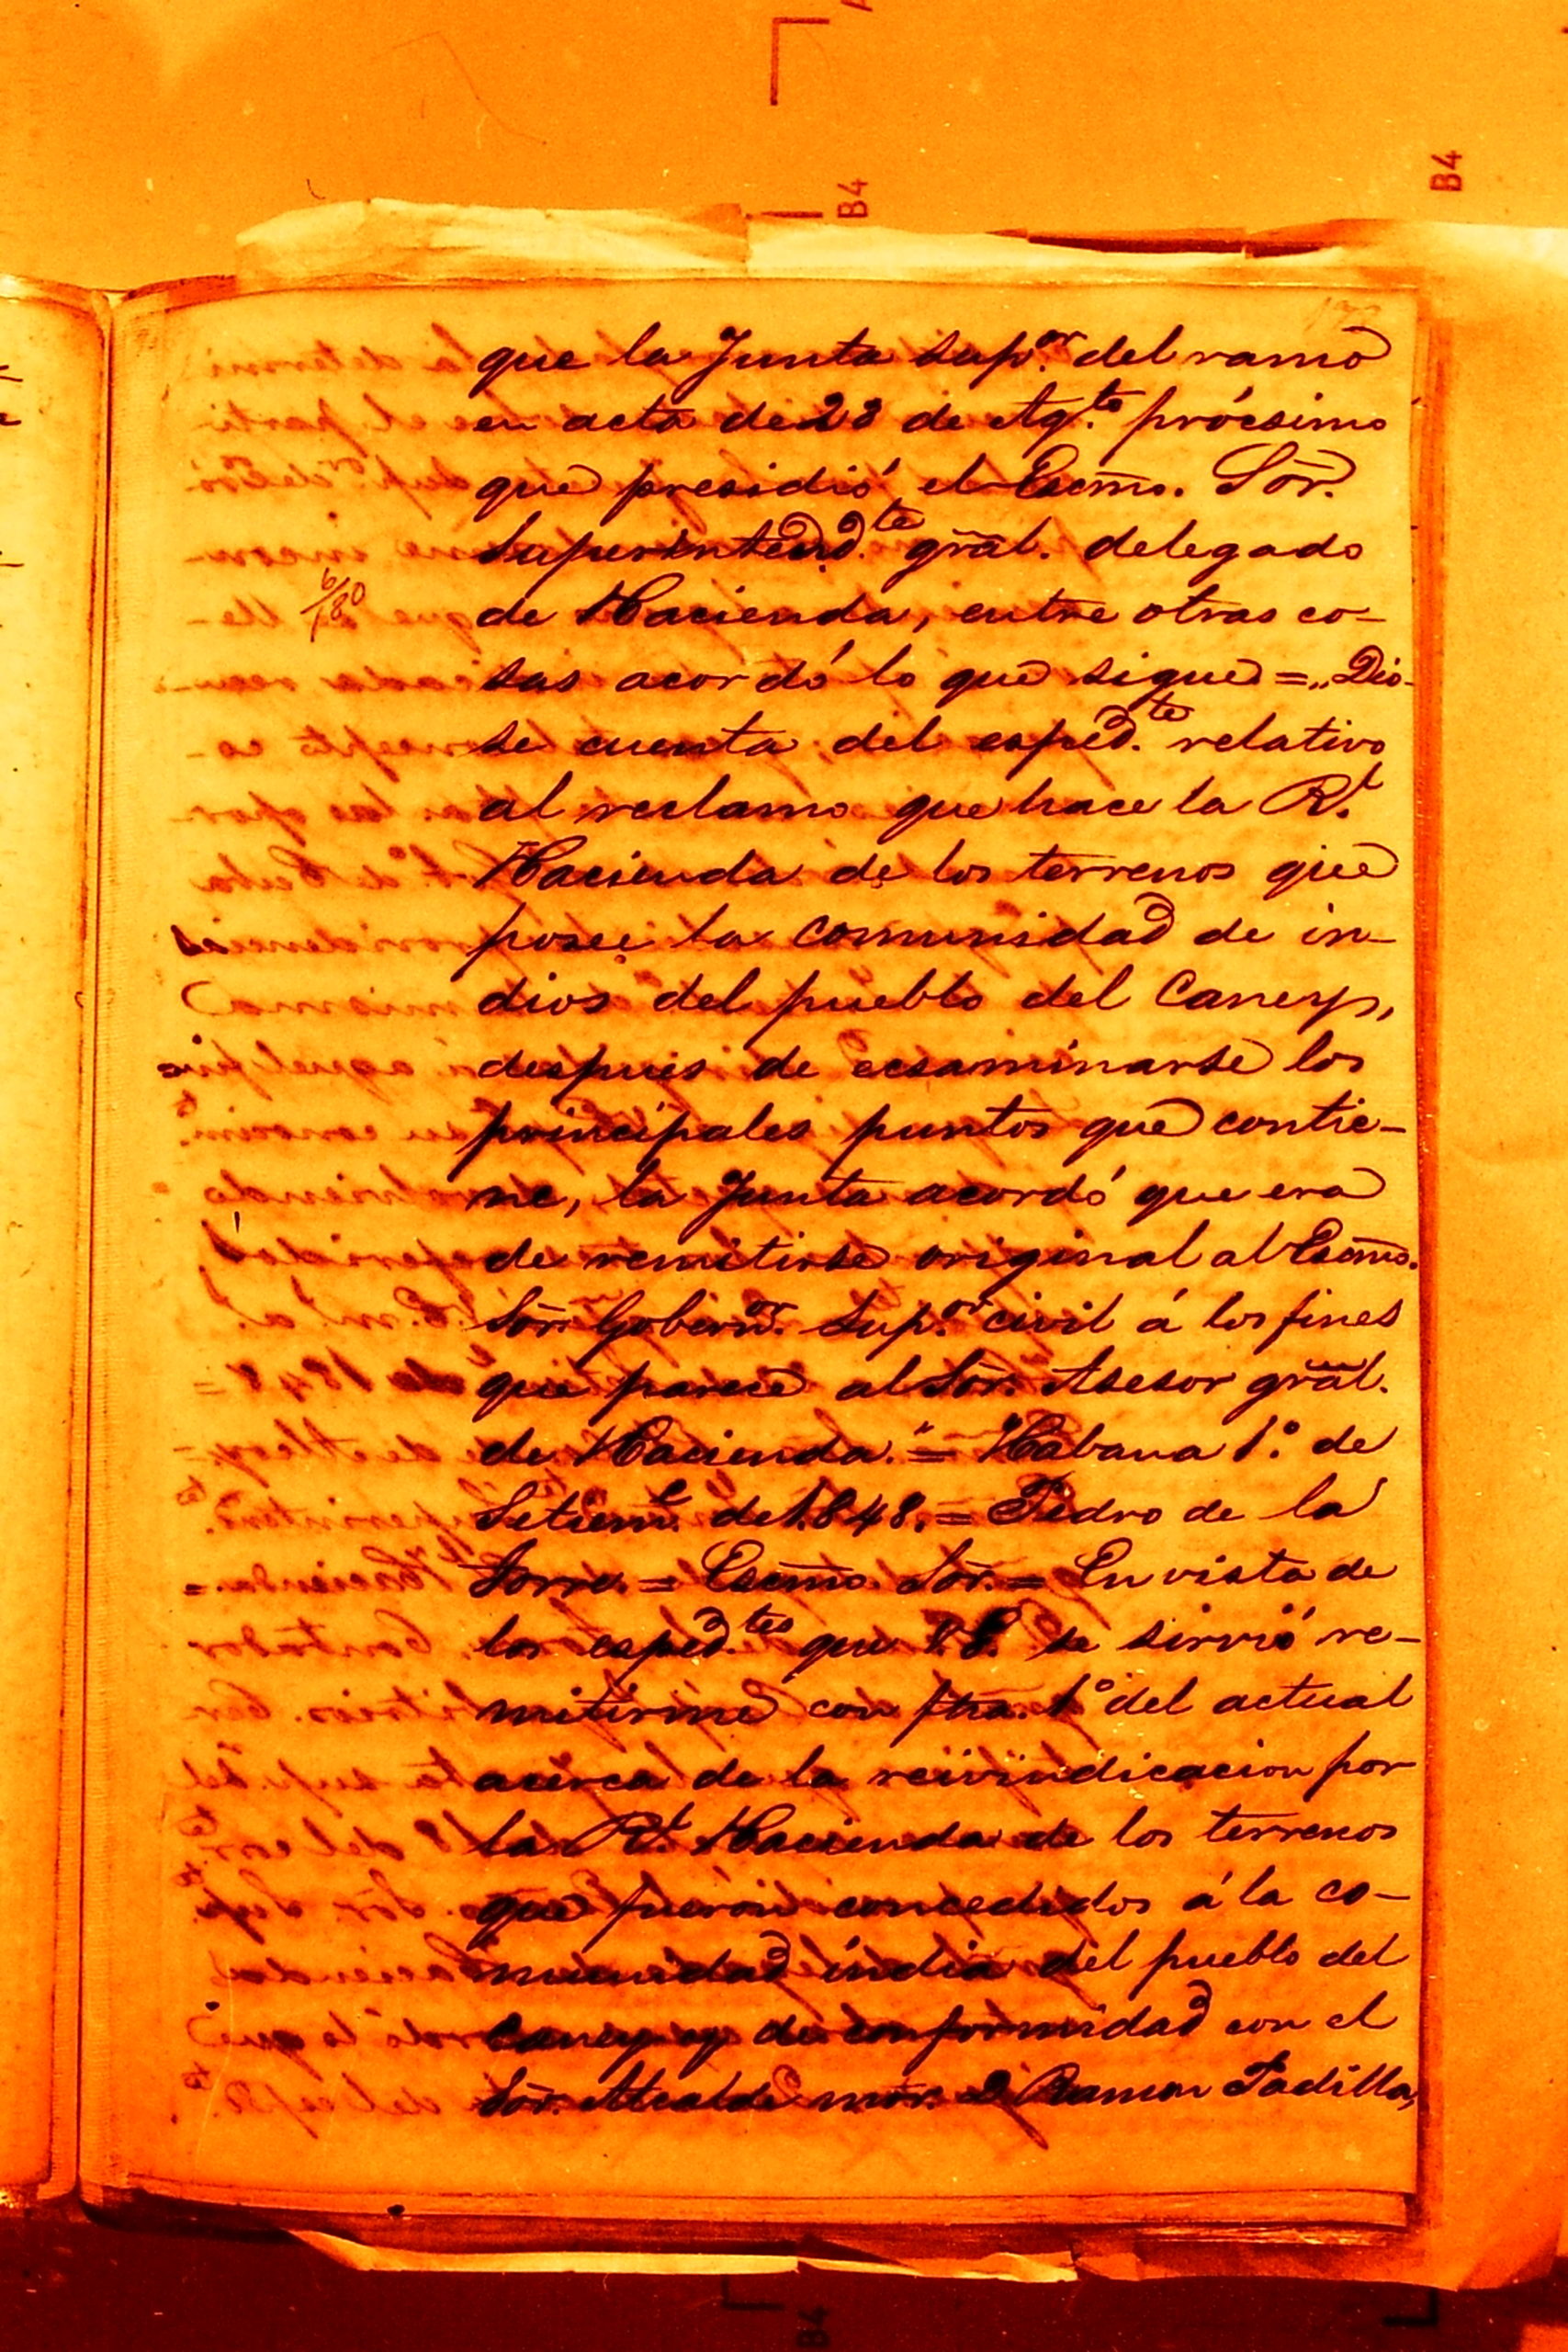 B4
B4
que la Junta Sup.or del ramo
en acta de 28 de Ag.to prócsimo
que presidió el Escmo. Sōr.
Superintend.te grāl. delegado
6/180
de Hacienda, entre otras co-
sas acordó lo que sigue = „Dió-
se cuenta del esped.te relativo
al reclamo que hace la R.l
Hacienda de los terrenos que
posee la comunidad de in-
dios del pueblo del Caney,
despues de ecsaminarse los
principales puntos que contie-
ne, la Junta acordó que era
de remitirse original al Escmo.
Sōr. Gobern.or Sup.or civil á los fines
que parece al Sōr. Asesor grāl.
de Hacienda." = Habana 1.º de
Setiem.e de 1848. = Pedro de la
Torre. = Escmo. Sōr. = En vista de
los esped.tes que V.E. se sirvió re-
mitirme con fha. 1º del actual
acerca de la reivindicacion por
la R.l Hacienda de los terrenos
que fueron concedidos á la co-
munidad india del pueblo del
Caney y de conformidad con el
Sōr. Alcalde mōr. D. Ramon Padilla,
B4